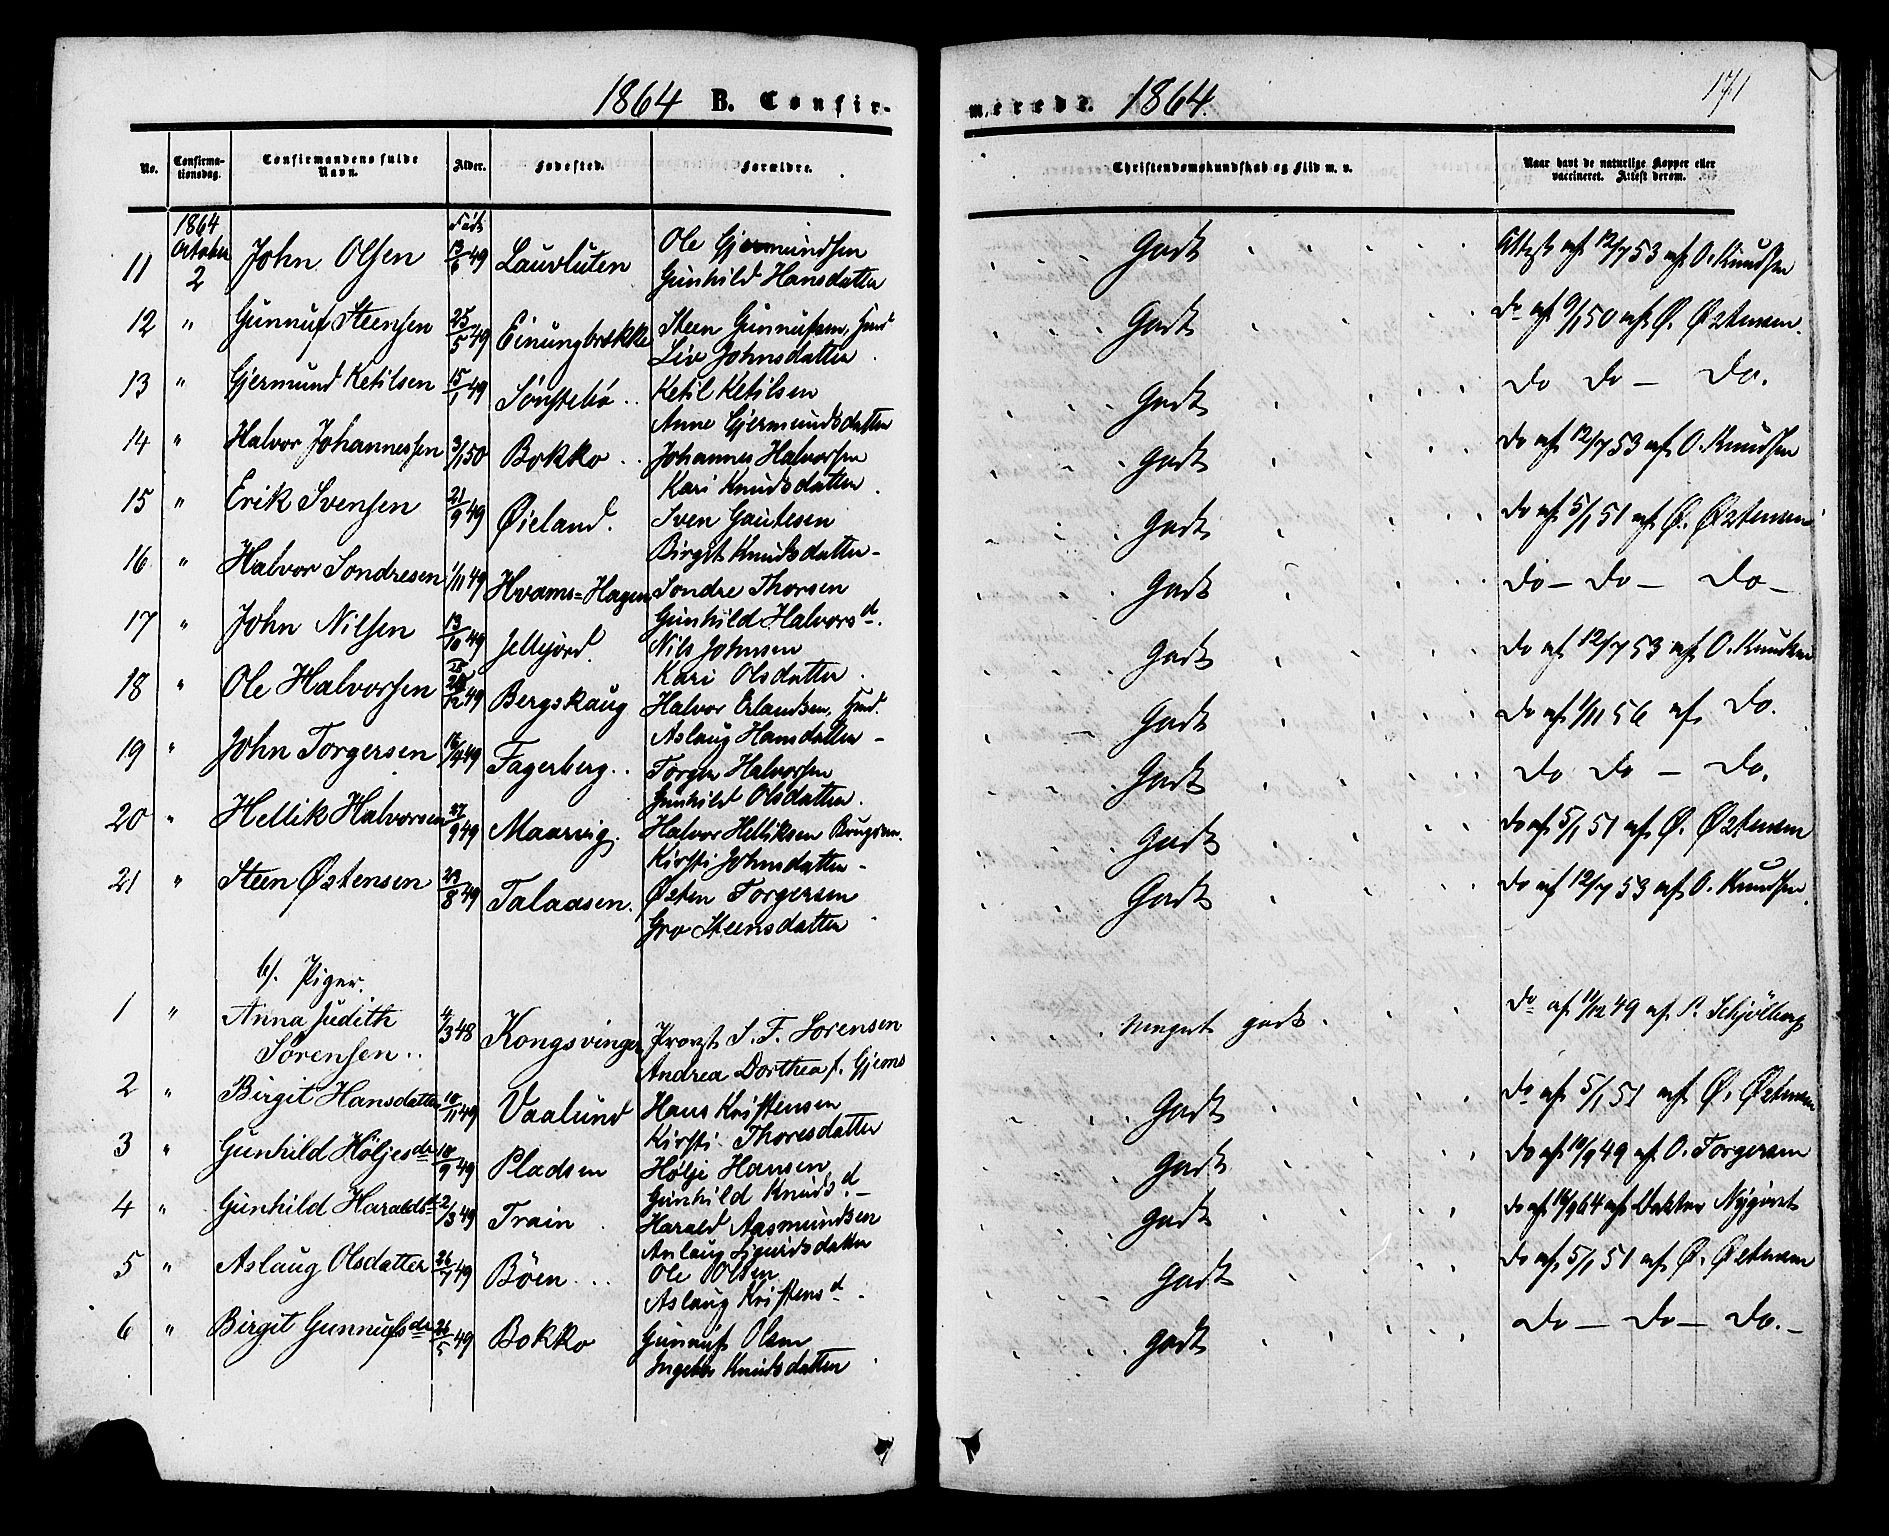 1864 B. Confir-
merede. 1864.
171
No. Confirma-tionsdag. Confirmandens fulde Navn. Alder. Fødested. Forældre. Christendomskundskab og Flid m. v. Naar havt de naturlige Kopper eller vaccineret. Attest derom.
1864 October 2
Født
11 John Olsen 13/6 49 Lauvluten Ole Gjermundsen Gunhild Hansdatter Godt Attest af 12/7 53 af O. Knudsen
12 " Gunnuf Steensen 25/5 49 Einungbrække Steen Gunnufsen, Huusd Liv Johnsdatter Godt Do af 9/1 50 af Ø. Østensen.
13 " Gjermund Ketilsen 15/1 49 Sønstebø Ketil Ketilsen Anne Gjermundsdatter Godt Do Do — Do.
14 " Halvor Johannessen 3/1 50 Bokko Johannes Halvorsen Kari Knudsdatter Godt Do af 12/7 53 af O. Knudsen
15 " Erik Svensen 21/9 49 Øieland. Sven Gautesen Birgit Knudsdatter Godt Do af 5/1 51 af Ø. Østensen
16 " Halvor Sondresen 1/11 49 Hvams=Hagen Sondre Thorsen Gunhild Halvorsd. Godt Do — Do — Do —
17 " John Nilsen 13/10 49 Jellejord Nils Johnsen Kari Olsdatter Godt Do af 12/7 53 af O. Knudsen
18 " Ole Halvorsen 49 Bergskaug Halvor Erlandsen, Aslaug Hansdatter Godt Do af 1/11 56 af Do.
19 " John Torgersen 49 Fagerberg Torger Halvorsen Gunhild Olsdatter. Godt Do Do — Do.
20 " Hellik Halvorsen 27/9 49 Maarvig. Halvor Helliksen Brugsm. Kirsti Johnsdatter Godt Do af 5/1 51 af Ø. Østensen
21 " Steen Østensen 23/8 49 Talaasen. Østen Torgersen Gro Steensdatter Godt Do af 12/7 53 af O. Knudsen.
b). Piger.
1 " Anna Judith Sørensen 4/3 48 Kongsvinger Provst S. F. Sorensen Andrea Dorthea f. Gjems Meget godt Do af 11/12 49 af P. Schjølberg
2 " Birgit Hansdatter 10/11 49 Vaalund Hans Kristensen Kirsti Thoresdatter Godt Do af 5/1 51 af Ø. Østensen
3 " Gunhild Høljesdr 10/9 49 Pladsen Hølje Hansen Gunhild Knudsd. Godt Do af 10/9 49 af O. Torgersen
4 " Gunhild Haraldsd 2/3 49 Train Harald Aasmundsen Aslaug Sigurdsdatter godt Do af 16/9 64 af Doktor Nygivet
5 " Aslaug Olsdatter 26/7 49 Bøen Ole Olsen Aslaug Kristensd Godt Do af 5/1 51 af Ø. Østensen
6 " Birgit Gunnufsdr 26/5 49 Bokko Gunnuf Olsen Ingebor Knudsdatter godt Do — Do — Do. —